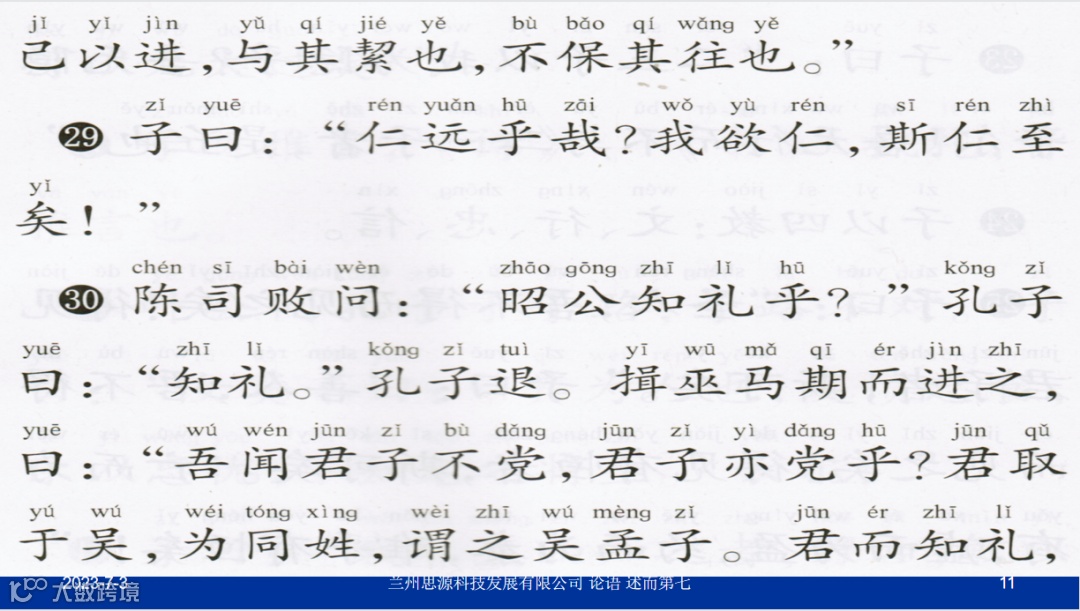 jǐ yǐ jìn yǔ qí jié yě bù bǎo qí wǎng yě
己以进，与其絜也，不保其往也。”
zǐ yuē rén yuǎn hū zāi wǒ yù rén sī rén zhì
29 子曰：“仁远乎哉？我欲仁，斯仁至
yǐ
矣！”
chén sī bài wèn zhāo gōng zhī lǐ hū kǒng zǐ
30 陈司败问：“昭公知礼乎？”孔子
yuē zhī lǐ kǒng zǐ tuì yī wū mǎ qī ér jìn zhī
曰：“知礼。”孔子退。揖巫马期而进之，
yuē wú wén jūn zǐ bù dǎng jūn zǐ yì dǎng hū jūn qǔ
曰：“吾闻君子不党，君子亦党乎？君取
yú wú wéi tóng xìng wèi zhī wú mèng zǐ jūn ér zhī lǐ
于吴，为同姓，谓之吴孟子。君而知礼，
2023-7-3 兰州思源科技发展有限公司 论语 述而第七 11
大数跨境